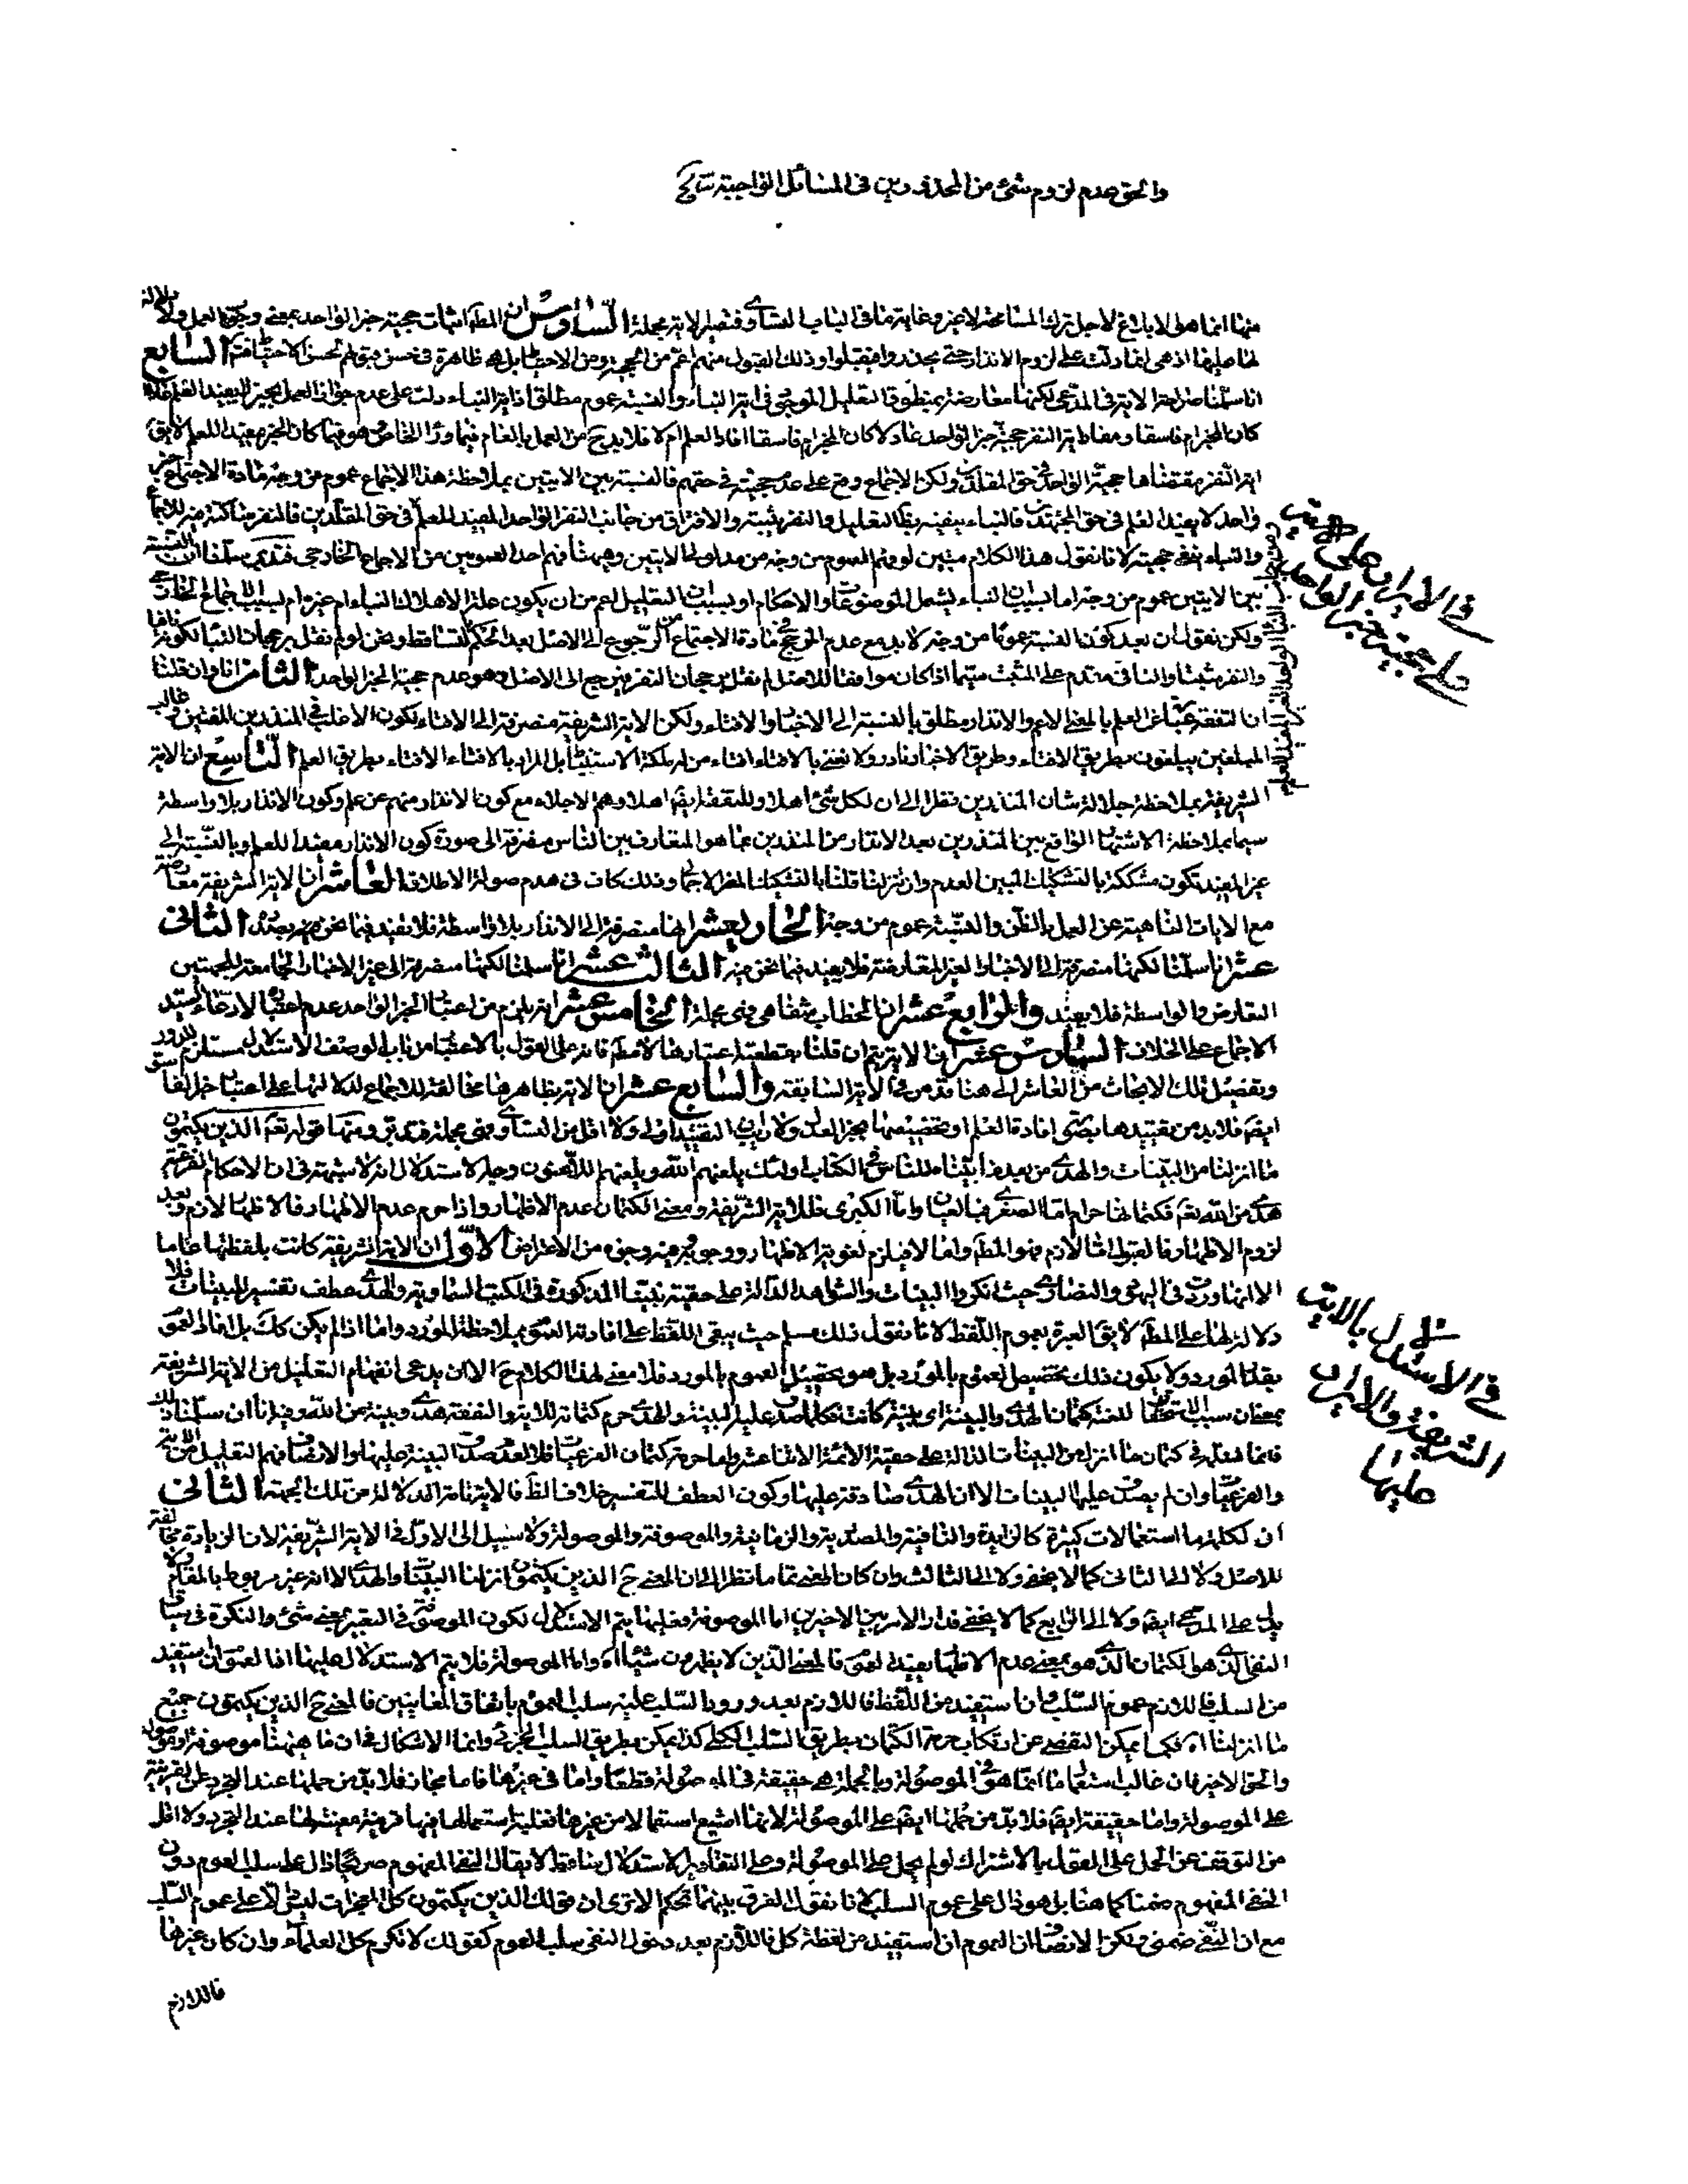 والحق عدم لزوم شئ من المحذورين فى المسائل الواجبة نتائج
منها انما هى الابلاغ لاجل ترك المسامحة لا غير وغاية ما فى الباب التساوى فتصير الاية مجملة السادس ان المط اثبات حجية خبر الواحد بمعنى وجوب العمل ولا دلالة
لها عليها اذ هى انما دلت على لزوم الانذار حتى يحذروا فيقبلوا وذلك القبول منهم اعم من الحجية ومن الاحتياط بل هى ظاهرة فى حسن
السابع
انا سلمنا صراحة الاية فى المدعى لكنها معارضة بمنطوق التعليل الموجود فى اية النباء والنسبة عموم مطلق اذ اية النباء دلت على عدم جواز العمل بخبر الغير المفيد للعلم
كان المخبر ام فاسقا ومفاد اية النفر حجية خبر الواحد عادلا كان المخبر ام فاسقا افاد العلم ام لا فلا بد ح من العمل بالعام فيما وراء الخاص وهو فيما كان الخبر مفيدا للعلم لا يق
اية النفر مقتضاها حجية الواحد فى حق المقلد ولكن الاجماع وقع على عدم حجيته فى حقهم فالنسبة بين الايتين بملاحظة هذا الاجماع عموم من وجه فمادة الاجتماع خبر
واحد لا يفيد العلم فى حق المجتهد فالنباء ينفيه بظاهر التعليل والنفر يثبته والافتراق من جانب النفر الواحد المفيد للعلم فى حق المقلدين فالنفر ساكتة عنه للاجماع
والنباء ينفى حجيته لانا نقول هذا الكلام متين لو فهم العموم من وجه من مدلولى الايتين وههنا فهم احد العمومين من الاجماع الخارجى فتدبر سلمنا ان النسبة
بين الايتين عموم من وجه اما بسبب ان النباء يشمل الموضوعات والاحكام او بسبب ان التعليل اعم من ان يكون علة الاهلاك النباء ام غيره ام لسبب الاجماع الخارجى
ولكن نقول ان بعد كون النسبة عموما من وجه لا بد مع عدم المرجح فى مادة الاجتماع من الرجوع الى الاصل بعد الحكم بالتساقط ونحن لو لم نقل برجحان النباء لكونها نافيا
والنفر مثبتا والنافى مقدم على المثبت سيما اذا كان موافقا للاصل لم نقل برجحان النفر فيرجع الى الاصل وهو عدم حجية الخبر الواحد الثامن انا وان قلنا
ان التفقه عبارة عن العلم بالمعنى الاعم والانذار مطلق بالنسبة الى الاخبار والافتاء ولكن الاية الشريفة منصرفة الى الافتاء لكون الاغلب فى المنذرين المفتين وغالب
المبلغين يبلغون بطريق الافتاء وطريق الاخبار نادر ولا نعنى بالافتاء افتاء من له ملكة الاستنباط بل المراد بالافتاء الافتاء بطريق العلم التاسع ان الاية
الشريفة بملاحظة جلالة شان المنذرين نظرا الى ان لكل شئ اهلا وللتفقه ايضا اهلا وهم الاجلاء مع كون الانذار منهم عن علم وكون الانذار بلا واسطة
سيما بملاحظة الاشتهار الواقع بين المنذرين بعد الانذار من المنذرين بما هو المتعارف بين الناس منصرفة الى صورة كون الانذار مفيدا للعلم وبالنسبة الى
غير المفيد تكون مشككة بالتشكيك المبين العدم وان تنزلنا قلنا بالتشكيك المضر الاجمالى وذلك كاف فى هدم صولة الاطلاق العاشر ان الاية الشريفة معارضة
مع الايات الناهية عن العمل بالظن والنسبة عموم من وجه الحاديعشر انها منصرفة الى الانذار بلا واسطة فلا يفيد فيما نحن بصدده الثانى
عشر انا سلمنا لكنها منصرفة الى الاخبار الغير المتعارضة فلا يفيد فيما نحن فيه الثالث عشر انا سلمنا لكنها منصرفة الى غير الاخبار الجامعة للجهتين
التعارض والواسطة فلا يفيد والرابع عشر ان الخطاب شفاهى فهى مجملة الخامس عشر انه يلزم من اعتبار الخبر الواحد عدم اعتباره لادعاء السيد
الاجماع على الخلاف السادس عشر ان الاية يتم ان قلنا بقطعية اعتبارها الا مط فانه على القول بالاعتبار من باب الوصف الاستدلال مستلزم للدور
وتفصيل تلك الابحاث من العاشر الى هنا قد مر فى الاية السابقة والسابع عشر ان الاية بظاهرها مخالفة للاجماع لدلالتها على اعتبار خبر الفاسق
ايضا فلا بد من تقييدها بصورة افادة العلم او تخصيصها بخبر العدل ولا ريب ان التقييد اولى ولا اقل من التساوى فهى مجملة فتدبر ومنها قوله تعالى ان الذين يكتمون
ما انزلنا من البينات والهدى من بعد ما بيناه للناس فى الكتاب اولئك يلعنهم الله ويلعنهم اللاعنون وجه الاستدلال انه لا شبهة فى ان الاحكام الفرعية
هدى من الله تعالى فكتمانها حرام اما الصغرى فبالعيان واما الكبرى فللاية الشريفة ومعنى الكتمان عدم الاظهار واذا حرم عدم الاظهار فالاظهار لازم وبعد
لزوم الاظهار فالقبول اما لازم فهو المط واما لا فيلزم لغوية الاظهار ووجوبه وفيه وجوه من الاعتراض الاول ان الاية الشريفة كانت بلفظها عاما
الا انها وردت فى اليهود والنصارى حيث انكروا البينات والشواهد الدالة على حقية نبينا المذكورة فى الكتب السماوية والهدى عطف تفسير للبينات فلا
دلالة لها على المط لا يق العبرة بعموم اللفظ لانا نقول ذلك مسلم حيث يبقى اللفظ على افادة العموم بملاحظة المورد واما اذا لم يكن كك بل افاد العموم
بقدر المورد ولا يكون ذلك تخصيص العموم بالمورد بل هو العموم بالمورد فلا معنى لهذا الكلام ح الا ان يدعى انفهام التعليل من الاية الشريفة
بمعنى ان سبب استحقاق اللعنة كتمان الهدى والبينة اى بينة كانت فكلما صدق عليه البينة والهدى حرم كتمانه للاية والتفقه هدى وبينة من الله وفيه انا ان سلمنا ذلك
فانما نسلم فى كتمان ما انزل من البينات الدالة على حقية الائمة الاثنا عشر واما حرمة كتمان الفرعيات فلا لعدم صدق البينة عليها والانصاف فهم التعليل من الاية
والفرعيات وان لم يصدق عليها البينات الا ان الهدى صادقة عليها وكون العطف للتفسير خلاف الظ فالاية تامة الدلالة من تلك الجهة الثانى
ان لكلمة ما استعمالات كثيرة كالزايدة والنافية والمصدرية والزمانية والموصوفة والموصولة ولا سبيل الى الاول فى الاية الشريفة لان الزيادة مخالفة
للاصل ولا الى الثانى كما لا يخفى ولا الى الثالث وان كان المعنى تماما نظرا الى ان المعنى ح الذين يكتمون انزلنا البينات والهدى الا انه غير مربوط بالمقام
يدل على المدعى ايضا ولا الى الرابع كما لا يخفى فدار الامر بين الاخيرين اما الموصوفة فعليها يتم الاستدلال لكون الموصوفة فى التعبير بمعنى شئ والنكرة فى سياق
النفى الذى هو الكتمان الذى هو بمعنى عدم الاظهار يفيد العموم فالمعنى الذين لا يظهرون شيئا اه واما الموصولة فلا يتم الاستدلال عليها اذ العموم ان استفيد
من السلب فاللازم عموم السلب وان استفيد من اللفظ فاللازم بعد ورود السلب عليه سلب العموم باتفاق المعانيين فالمعنى ح الذين يكتمون جميع
ما انزلنا اه فكما يمكن التفصى عن ارتكاب حرمة الكتمان بطريق السلب الكلى كذا يمكن بطريق السلب الجزئى وانما الاشكال فى ان ما ههنا موصوفة او موصولة
والحق الاخير لان غالب استعمال ما انما هو فى الموصولة وبالجملة هى حقيقة فى الموصولة قطعا واما فى غيرها فاما مجاز فلا بد من حملها عند التجرد عن القرينة
على الموصولة واما حقيقة ايضا فلا بد من حملها ايضا على الموصولة لانها اشيع استعمالا من غيرها فغلبة استعمالها فيها قرينة معينة لها عند التجرد ولا اقل
من التوقف عن الحمل على القول بالاشتراك لو لم يحمل على الموصولة وعلى التقادير الاستدلال ساقط لا يقال النفى المفهوم صريحا دال على سلب العموم دون
النفى المفهوم ضمنا كما هنا بل هو دال على عموم السلب لانا نقول الفرق بينهما تحكم الا ترى ان قولك الذين يكتمون كل المعجزات ليس دالا على عموم السلب
مع ان النفى ضمنى ولكن الانصاف ان العموم ان استفيد من لفظة كل فاللازم بعد دخول النفى سلب العموم كقولك لا تكرم كل العلماء وان كان غيرها
فاللازم
فى الايراد على الاية
على حجية خبر الواحد
فى الاستدلال بالاية
الشريفة والايراد
عليها